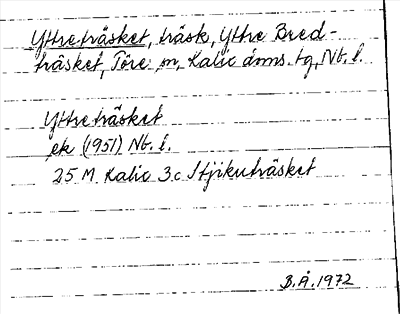 Yttreträsket, träsk, Yttre Bred-
träsket, Töre sn, Kalix doms. tg, Nb. l.
Yttreträsket
ek (1951) Nb. l.
25 M Kalix 3c Stjikuträsket
B.Å. 1972